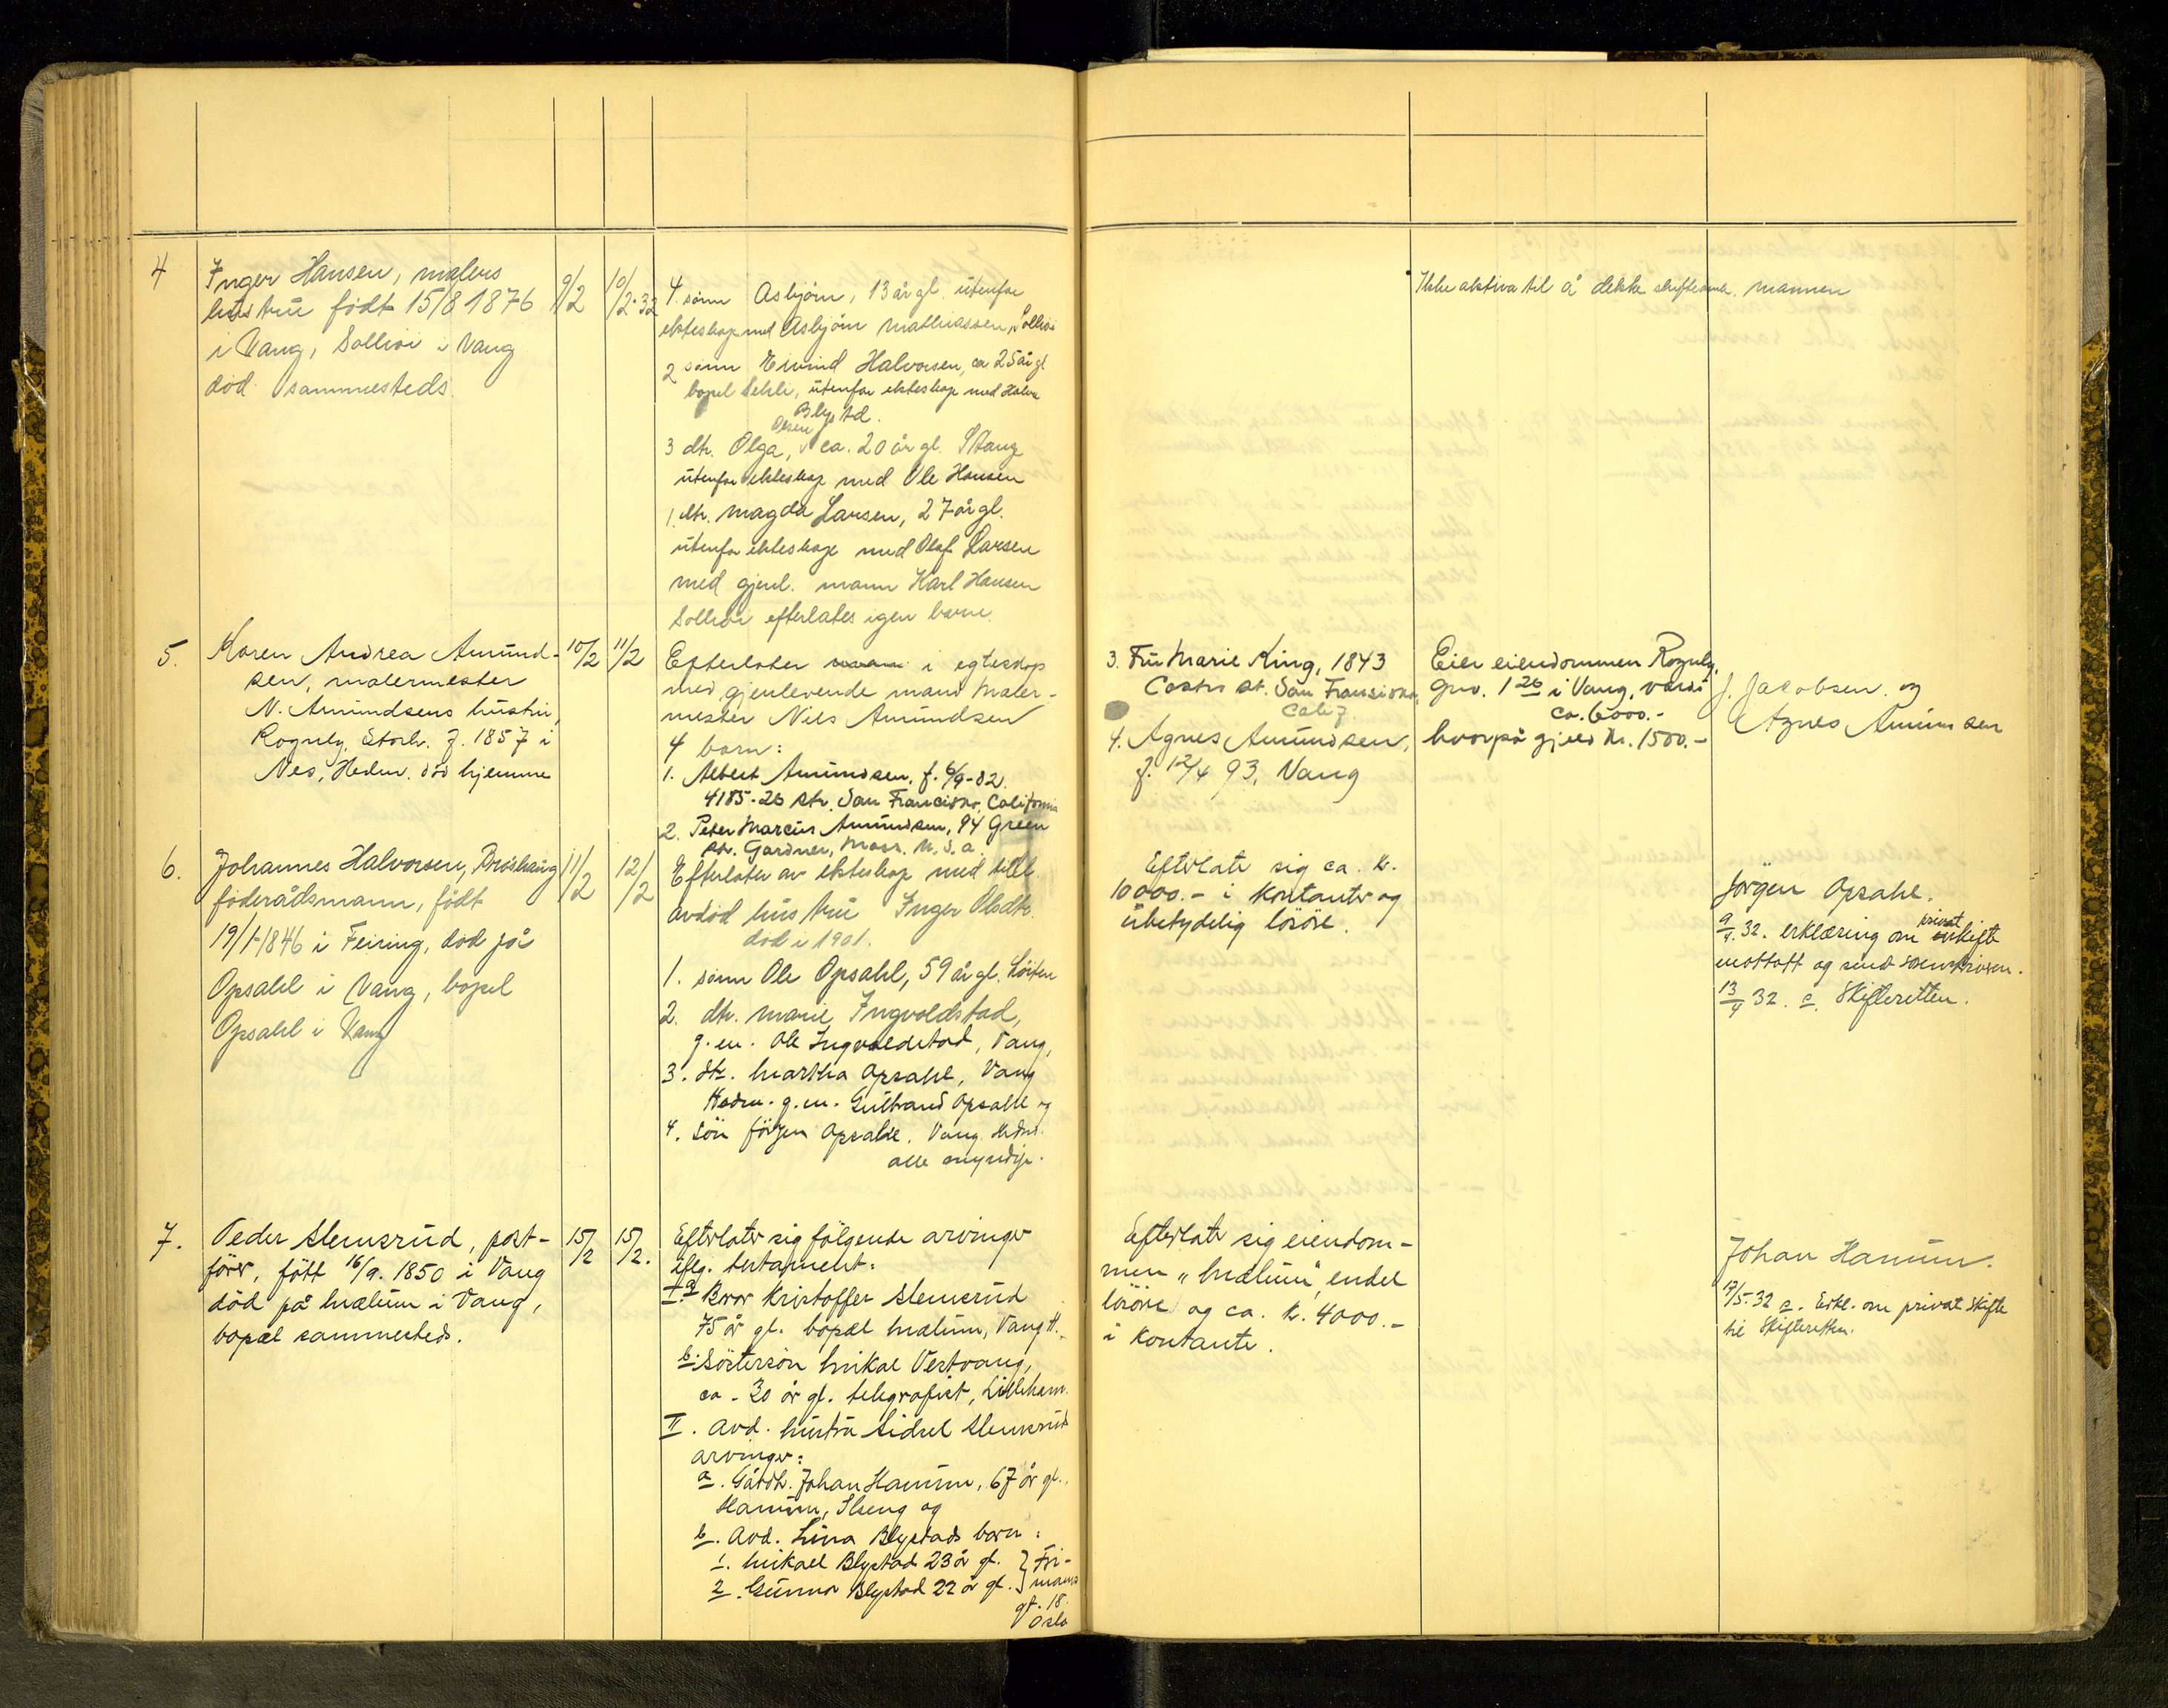 4
Inger Hansen, malers
hustru født 15/8 1876
i Vang, Sollien i Vang
död sammesteds.
9/2
10/2-32
4. sönn Asbjörn, 13 år gl. utenfor
ekteskap med Asbjörn Mathiassen,
2 sönn Eivind Halvorsen, ca 25 år gl
bopel utenfor ekteskap med Halvor
Blystad.
Olsen
3 dtr. Olga, ca. 20 år gl. Stange
utenfor ekteskap med Ole Hansen
1. dtr. Magda Larsen, 27 år gl.
utenfor ekteskap med Olaf Larsen
med gjenl. mann Karl Hansen
efterlates igen barn.
Ikke aktiva til å dekke mannen
5.
Karen Andrea Amund-
sen, malermester
N. Amundsens hustru,
Rognly, Storh. f. 1857 i
Nes, Hedm. död hjemme
10/2
11/2
Efterlater i egteskap
med gjenlevende mand Maler-
mester Niels Amundsen
4 barn:
1. Albert Amundsen, f. 6/9-82.
4185-26 str. San Francisko, California
2. Peter Marcus Amundsen, 94 Green
str. Gardner, Mass. U.S.a.
3. Fru Marie King, 1843
Castro st. San Fransisko,
Calif
4. Agnes Amundsen,
f. 12/4 93, Vang
Eier eiendommen Rognly,
gnr. 1 26 i Vang, verdi
ca. 6000.-
hvorpå gjeld kr. 1500.-
J. Jacobsen og
Agnes Amundsen
6.
Johannes Halvorsen,
föderådsmann, född
19/1-1846 i Feiring, död på
Opsahl i Vang, bopel
Opsahl i Vang
11/2
12/2
Efterlater av ekteskap med tidl.
avdöd hustru Inger Olsdtr.
död i 1901.
1. sönn Ole Opsahl, 59 år gl. Löiten
2. dtr. Marie Ingvoldstad,
g.m. Ole Ingvoldstad, Vang,
3. dtr. Martha Opsahl, Vang
Hedm. g.m. Gulbrand Opsahl og
4. Sön Jörgen Opsahl. Vang. Hedm.
alle myndige.
Efterlate sig ca. kr.
10000.- i kontanter og
ubetydelig lösöre.
Jörgen Opsahl.
9/4. 32. erklæring om privat skifte
mottatt og sendt sorenskriveren.
13/4 32. e. Skifteretten.
7.
Peder Slemsrud, post-
förer, fött 16/9. 1850 i Vang
död på Mælum i Vang,
bopæl sammesteds.
15/2
15/2.
Efterlater sig følgende arvinger
iflg. testament:
I. a Bror Kristoffer Slemsrud
75 år gl. bopæl Mælum, Vang H.
b. Söstersön Mikal Vestvang,
ca. 30 år gl. telegrafist, Lilleham.
II. Avd. hustru Sidsel Slemsrud
arvinger:
a. Gårdb. Johan Hamum, 67 år gl.,
Hamum, Ilseng og
b. Avd. Lina Blystads barn:
1. Mikael Blystad 23 år gl. } Fri-
2. Gunnar Blystad 22 år gl. } manns
gt. 18.
Oslo
Efterlate sig eiendom-
men "Mælum", endel
lösöre og ca. kr. 4000.-
i kontante.
Johan Hamum.
17/5-32 e. Erkl. om privat skifte
til Skifteretten.